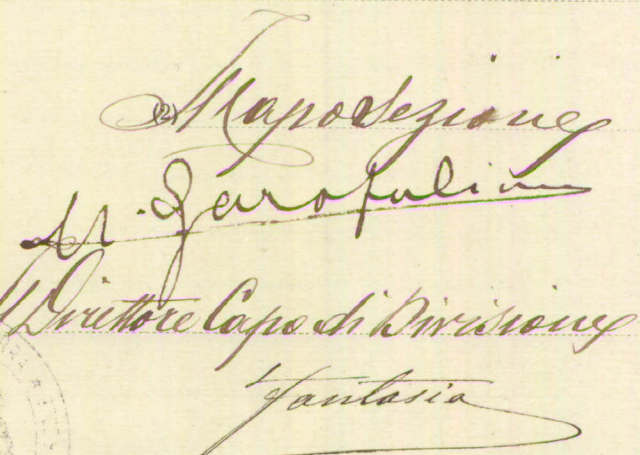 (2) Il Capo Sezione
M. Garofalini
Il Direttore Capo di Divisione
Fantasia